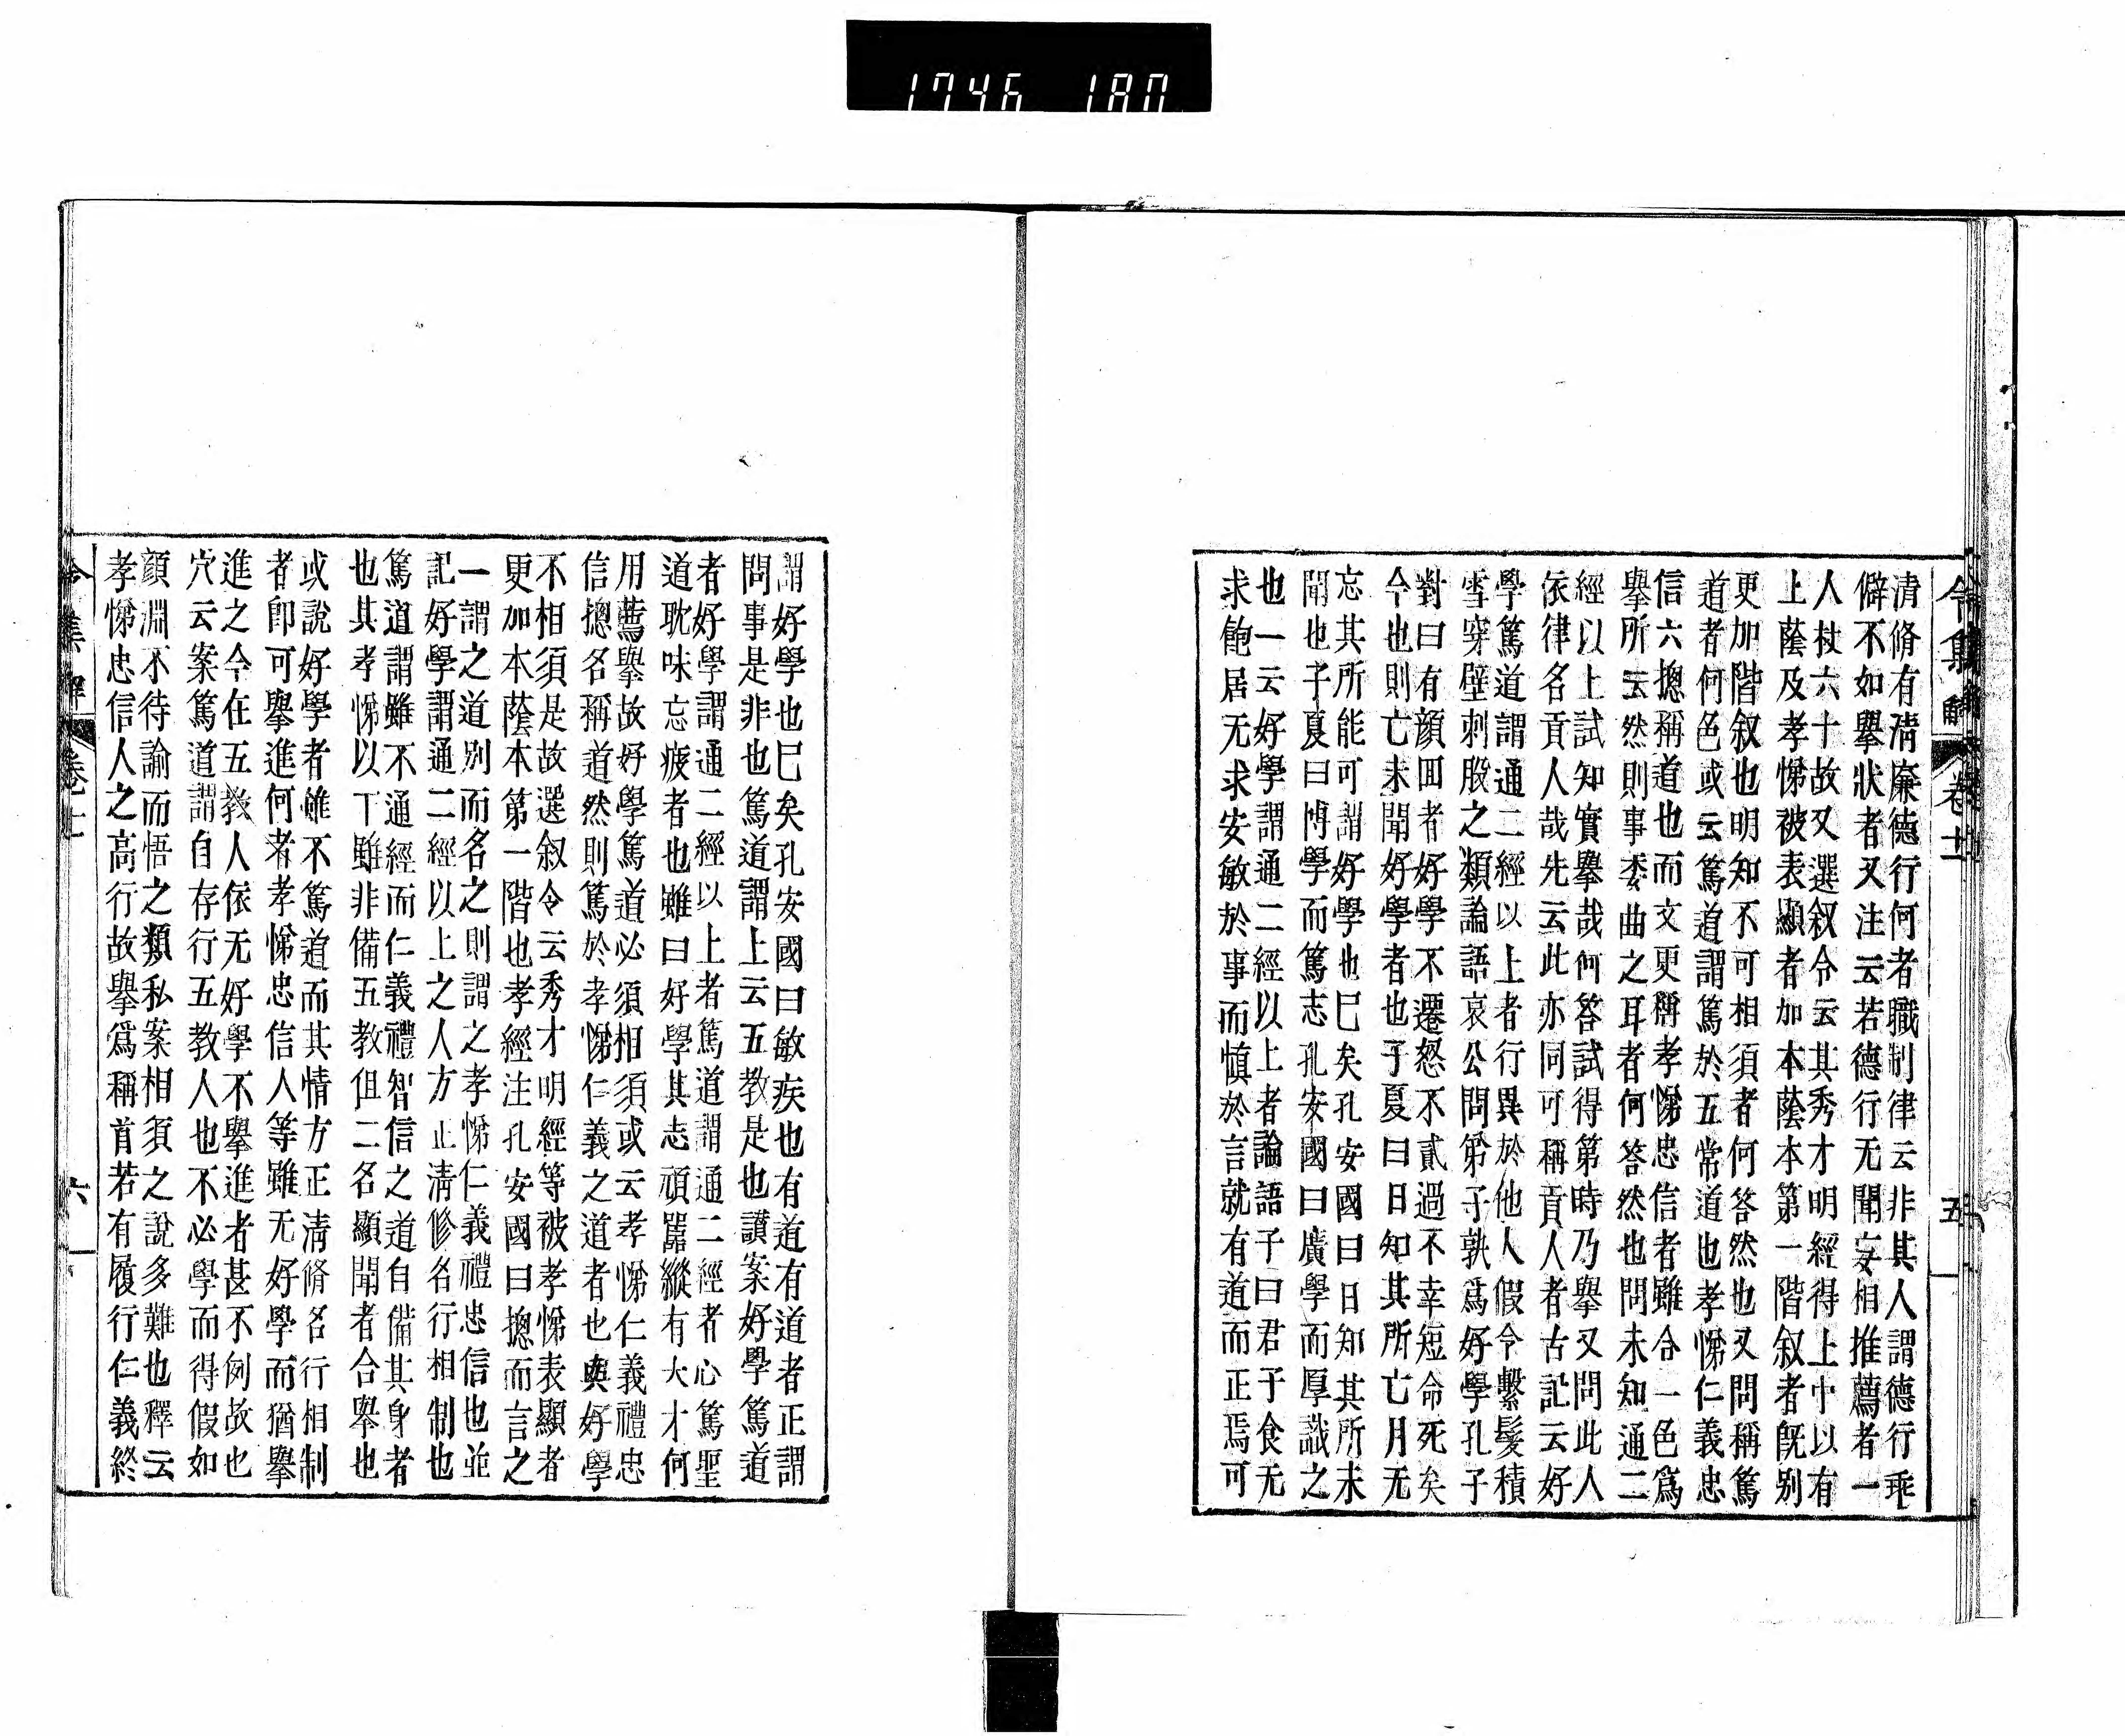 1746 180
令集解 卷十 五
清脩有清廉德行何者職制律云非其人謂德行乖
僻不如擧狀者又注云若德行无聞妄相推薦者一
人杖六十故又選叙令云其秀才明經得上中以有
上蔭及孝悌被表顯者加本蔭本第一階叙者旣别
更加階叙也明知不可相須者何答然也又問稱篤
道者何色或云篤道謂篤於五常道也孝悌仁義忠
信六摠稱道也而文更稱孝悌忠信者雖合一色爲
擧所云然則事委曲之耳者何答然也問未知通二
經以上試知實擧哉何答試得第時乃擧又問此人
依律名貢人哉先云此亦同可稱貢人者古記云好
學篤道謂通二經以上者行異於他人假令繫髮積
雪穿壁刺股之類論語哀公問第子孰爲好學孔子
對曰有顔回者好學不遷怒不貳過不幸短命死矣
今也則亡未聞好學者也子夏曰日知其所亡月无
忘其所能可謂好學也巳矣孔安國曰日知其所未
聞也子夏曰博學而篤志孔安國曰廣學而厚識之
也一云好學謂通二經以上者論語子曰君子食无
求飽居无求安敏於事而愼於言就有道而正焉可
謂好學也巳矣孔安國曰敏疾也有道有道者正謂
問事是非也篤道謂上云五教是也讃案好學篤道
者好學謂通二經以上者篤道謂通二經者心篤聖
道耽味忘疲者也雖曰好學其志頑嚚縱有大才何
用薦擧故好學篤道必須相須或云孝悌仁義禮忠
信摠名稱道然則篤於孝悌仁義之道者也與好學
不相須是故選叙令云秀才明經等被孝悌表顯者
更加本蔭本第一階也孝經注孔安國曰摠而言之
一謂之道别而名之則謂之孝悌仁義禮忠信也並
記好學謂通二經以上之人方正淸修名行相制也
篤道謂雖不通經而仁義禮智信之道自備其身者
也其孝悌以下雖非備五教但二名顯聞者合擧也
或說好學者雖不篤道而其情方正淸脩名行相制
者卽可擧進何者孝悌忠信人等雖无好學而猶擧
進之今在五教人依无好學不擧進者甚不例故也
穴云案篤道謂自存行五教人也不必學而得假如
顔淵不待諭而悟之類私案相須之說多難也釋云
孝悌忠信人之高行故擧爲稱首若有履行仁義終
令集解 卷十 六